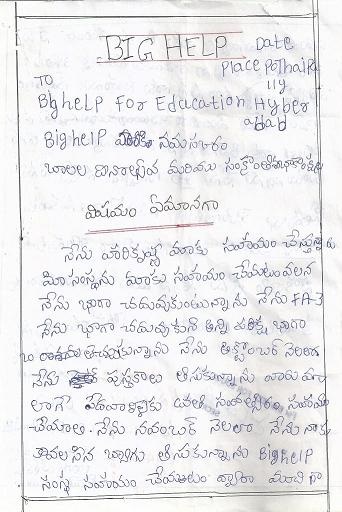 BIG HELP
Date
Place Pothaipa
lly
TO
Bighelp For Education Hyber
abad
Bighelp వారికి నమస్కారం
బాలల దినోత్సవ మరియు సంక్రాంతి శుభాకాంక్షలు
విషయం ఏమనగా
నేను హరికృష్ణ మాకు సహాయం చేస్తున్నారు
మీ సంస్థను మాకు సహాయం చేయటం వలన
నేను బాగా చదువుకుంటున్నాను నేను FA-3
నేను బాగా చదువుకుని అన్ని పరీక్ష బాగా
నేను అక్టోబర్ నెలలో
నేను పుస్తకాలు తీసుకున్నాను
లాగే సంవత్సరం సహాయం
చేయాలి. నేను నవంబర్ నెలలో నేను నాకు
కావలసిన బ్యాగు తీసుకున్నాను Bighelp
సంస్థ సహాయం చేయటం ద్వారా